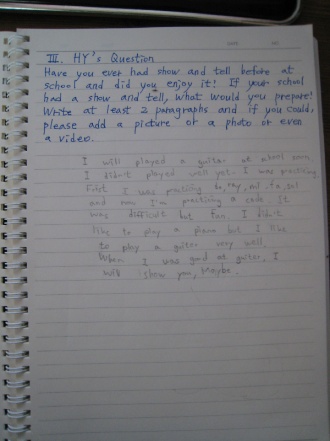 III. HY's Question
Have you ever had show and tell before at
school and did you enjoy it? If your school
had a show and tell, what would you prepare?
Write at least 2 paragraphs and if you could,
please add a picture or a photo or even
a video.
I will played a guitar at school
I didn't played well yet. I was practicing
First I was practicing do, ray, mi, fa, sol
and now I'm practicing a code. It
was difficult but fan. I didn't
like to play a piano but I like
to play a guitar very well.
When I was good at guitar, I
will show you, Maybe.